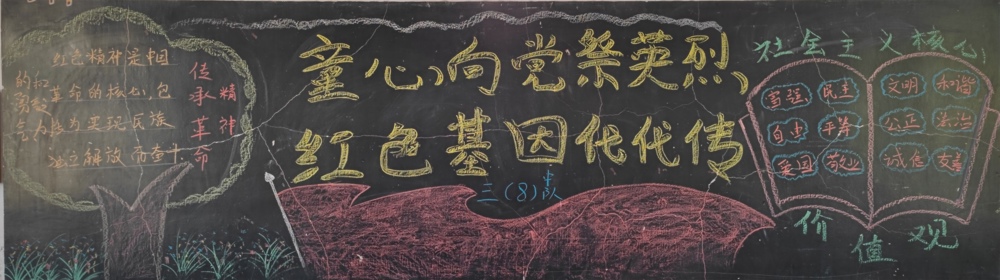 童心向党祭英烈
红色基因代代传
三(8)中队
红色精神是中国
革命的核心,包
含为实现民族
独立解放而奋斗
传承
革命
精神
社会主义核心
价值观
富强 民主
文明 和谐
自由 平等
公正 法治
爱国 敬业
诚信 友善